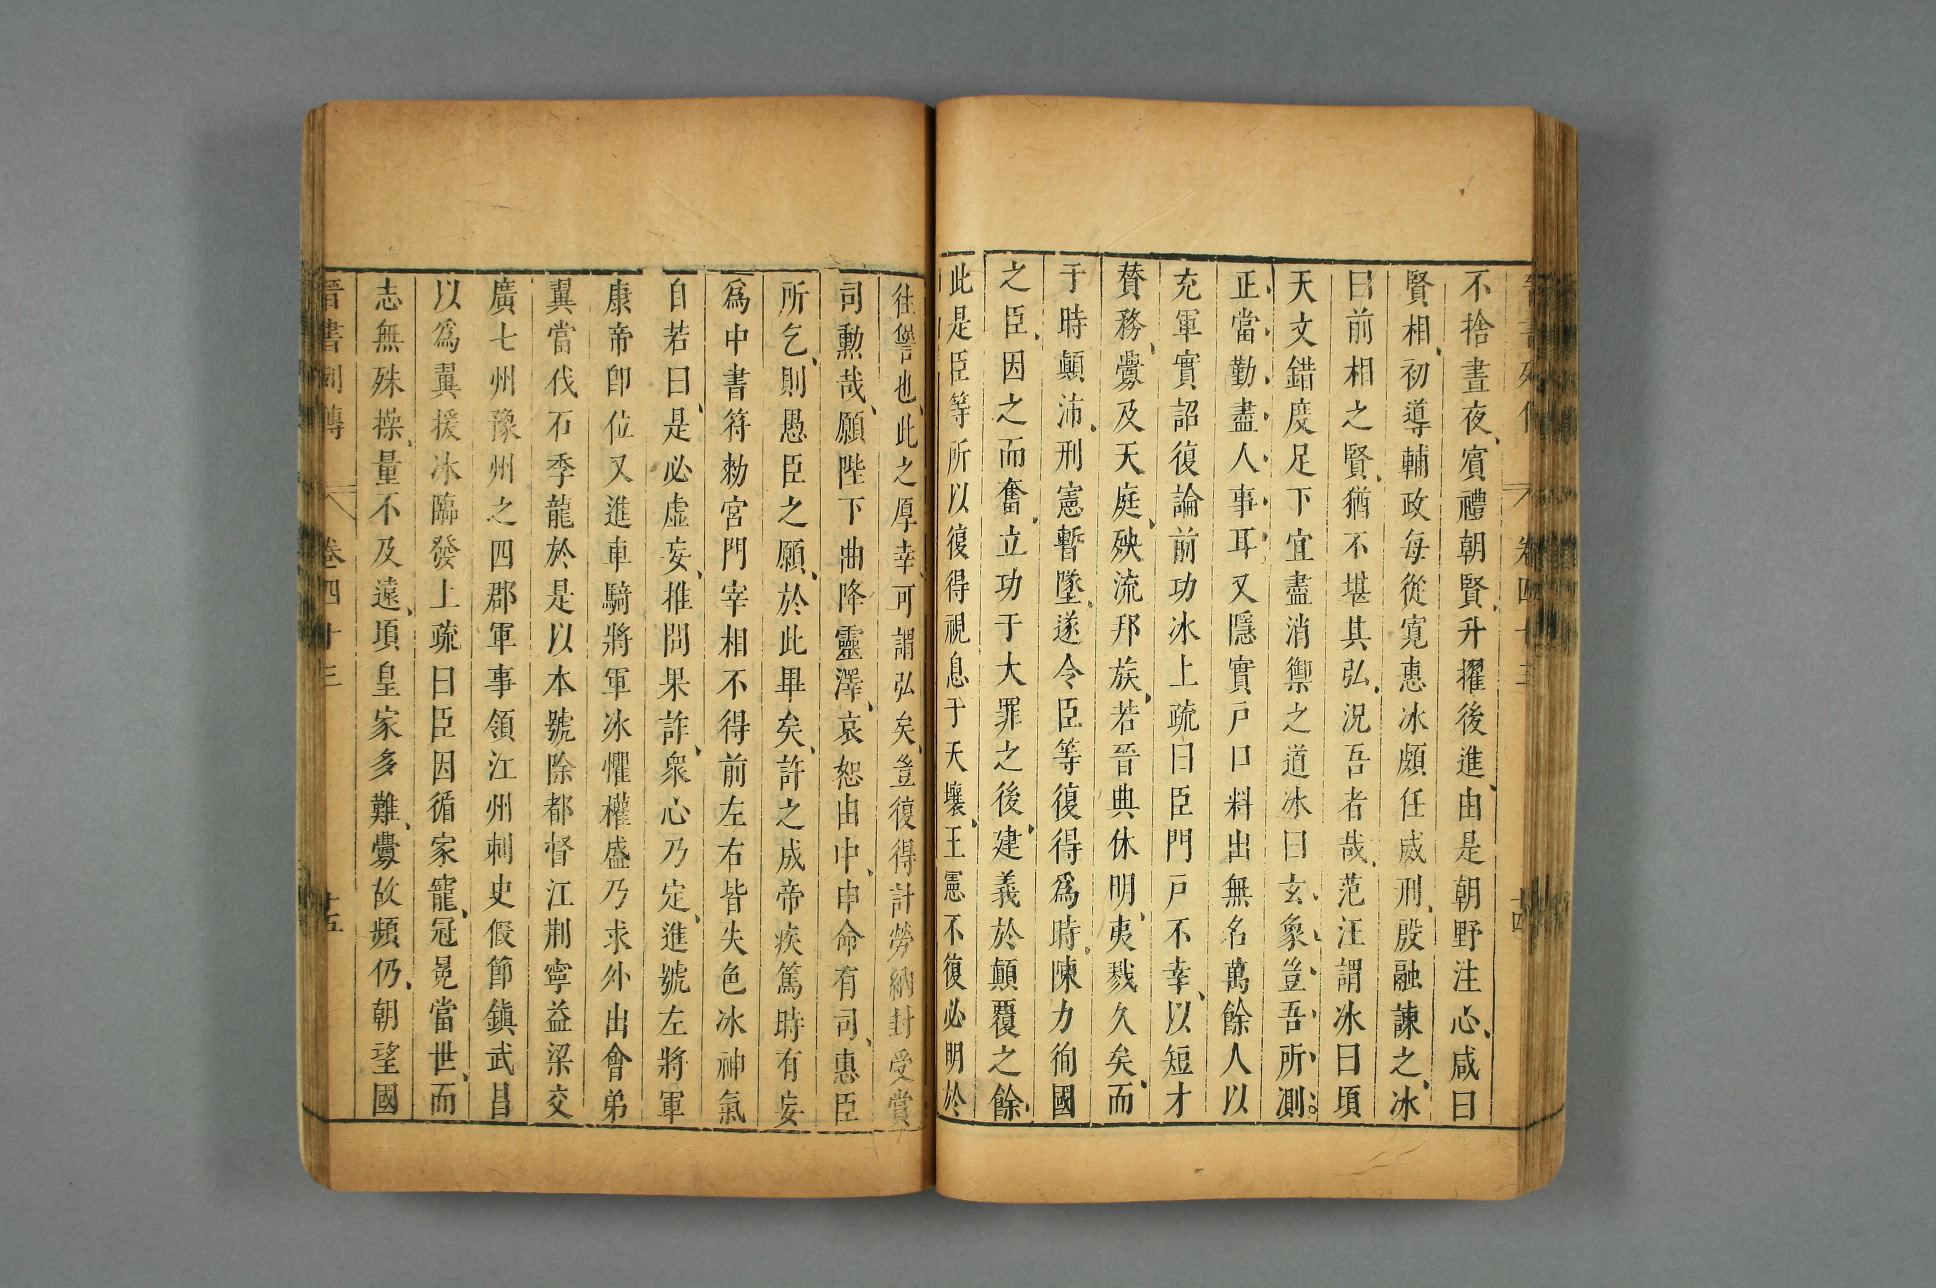 不捨晝夜賓禮朝賢升擢後進由是朝野注心咸曰
賢相初導輔政每從寬惠冰頗任威刑殷融諫之冰
曰前相之賢猶不堪其弘況吾者哉范汪謂冰曰頃
天文錯度足下宜盡消禦之道冰曰玄象豈吾所測
正當勤盡人事耳又隱實戸口料出無名萬餘人以
充軍實詔復論前功冰上疏曰臣門戸不幸以短才
贊務釁及天庭殃流邦族若晉典休明夷戮久矣而
于時顛沛刑憲暫墜遂令臣等復得爲時陳力徇國
之臣因之而奮立功于大罪之後建義於顛覆之餘
此是臣等所以復得視息于天壤王憲不復必明於
往愆也此之厚幸可謂弘矣豈復得計勞納封受賞
司勳哉願陛下曲降靈澤哀恕由中申命有司惠臣
所乞則愚臣之願於此畢矣許之成帝疾篤時有妄
爲中書符勑宮門宰相不得前左右皆失色冰神氣
自若曰是必虛妄推問果詐衆心乃定進號左將軍
康帝卽位又進車騎將軍冰懼權盛乃求外出會弟
翼當伐石季龍於是以本號除都督江荆寧益梁交
廣七州豫州之四郡軍事領江州刺史假節鎮武昌
以爲翼援冰臨發上疏曰臣因循家寵冠冕當世而
志無殊操量不及遠頃皇家多難釁故頻仍朝望國
晉書列傳 卷四十三 十五